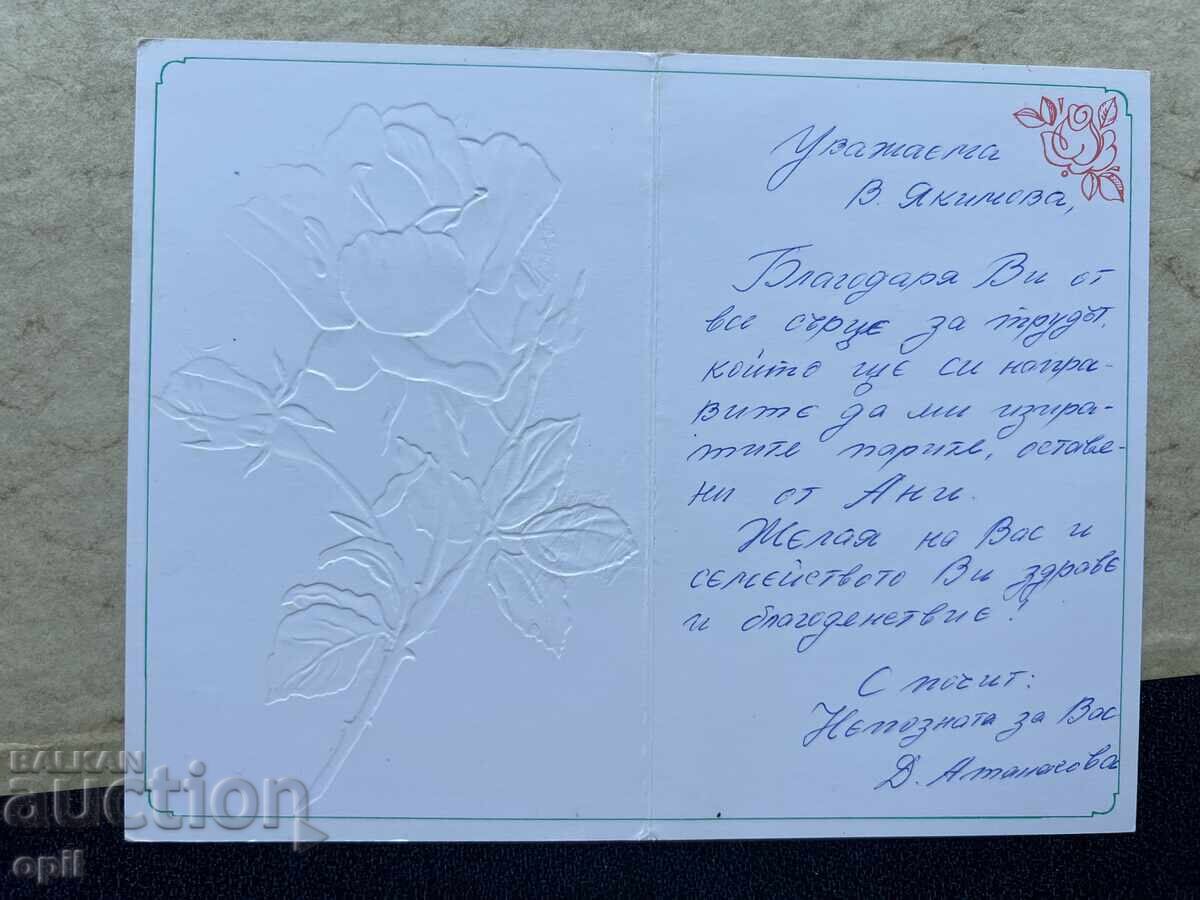 Уважаема
В. Якимова,
Благодаря Ви от
все сърце за трудът,
който ще си напра-
вите да ми изпра-
тите парите, оставе-
ни от Ани.
Желая на Вас и
семейството Ви здраве
и благоденствие!
С почит:
Непозната за Вас
Д. Атанасова
BALKAN
auction
opil